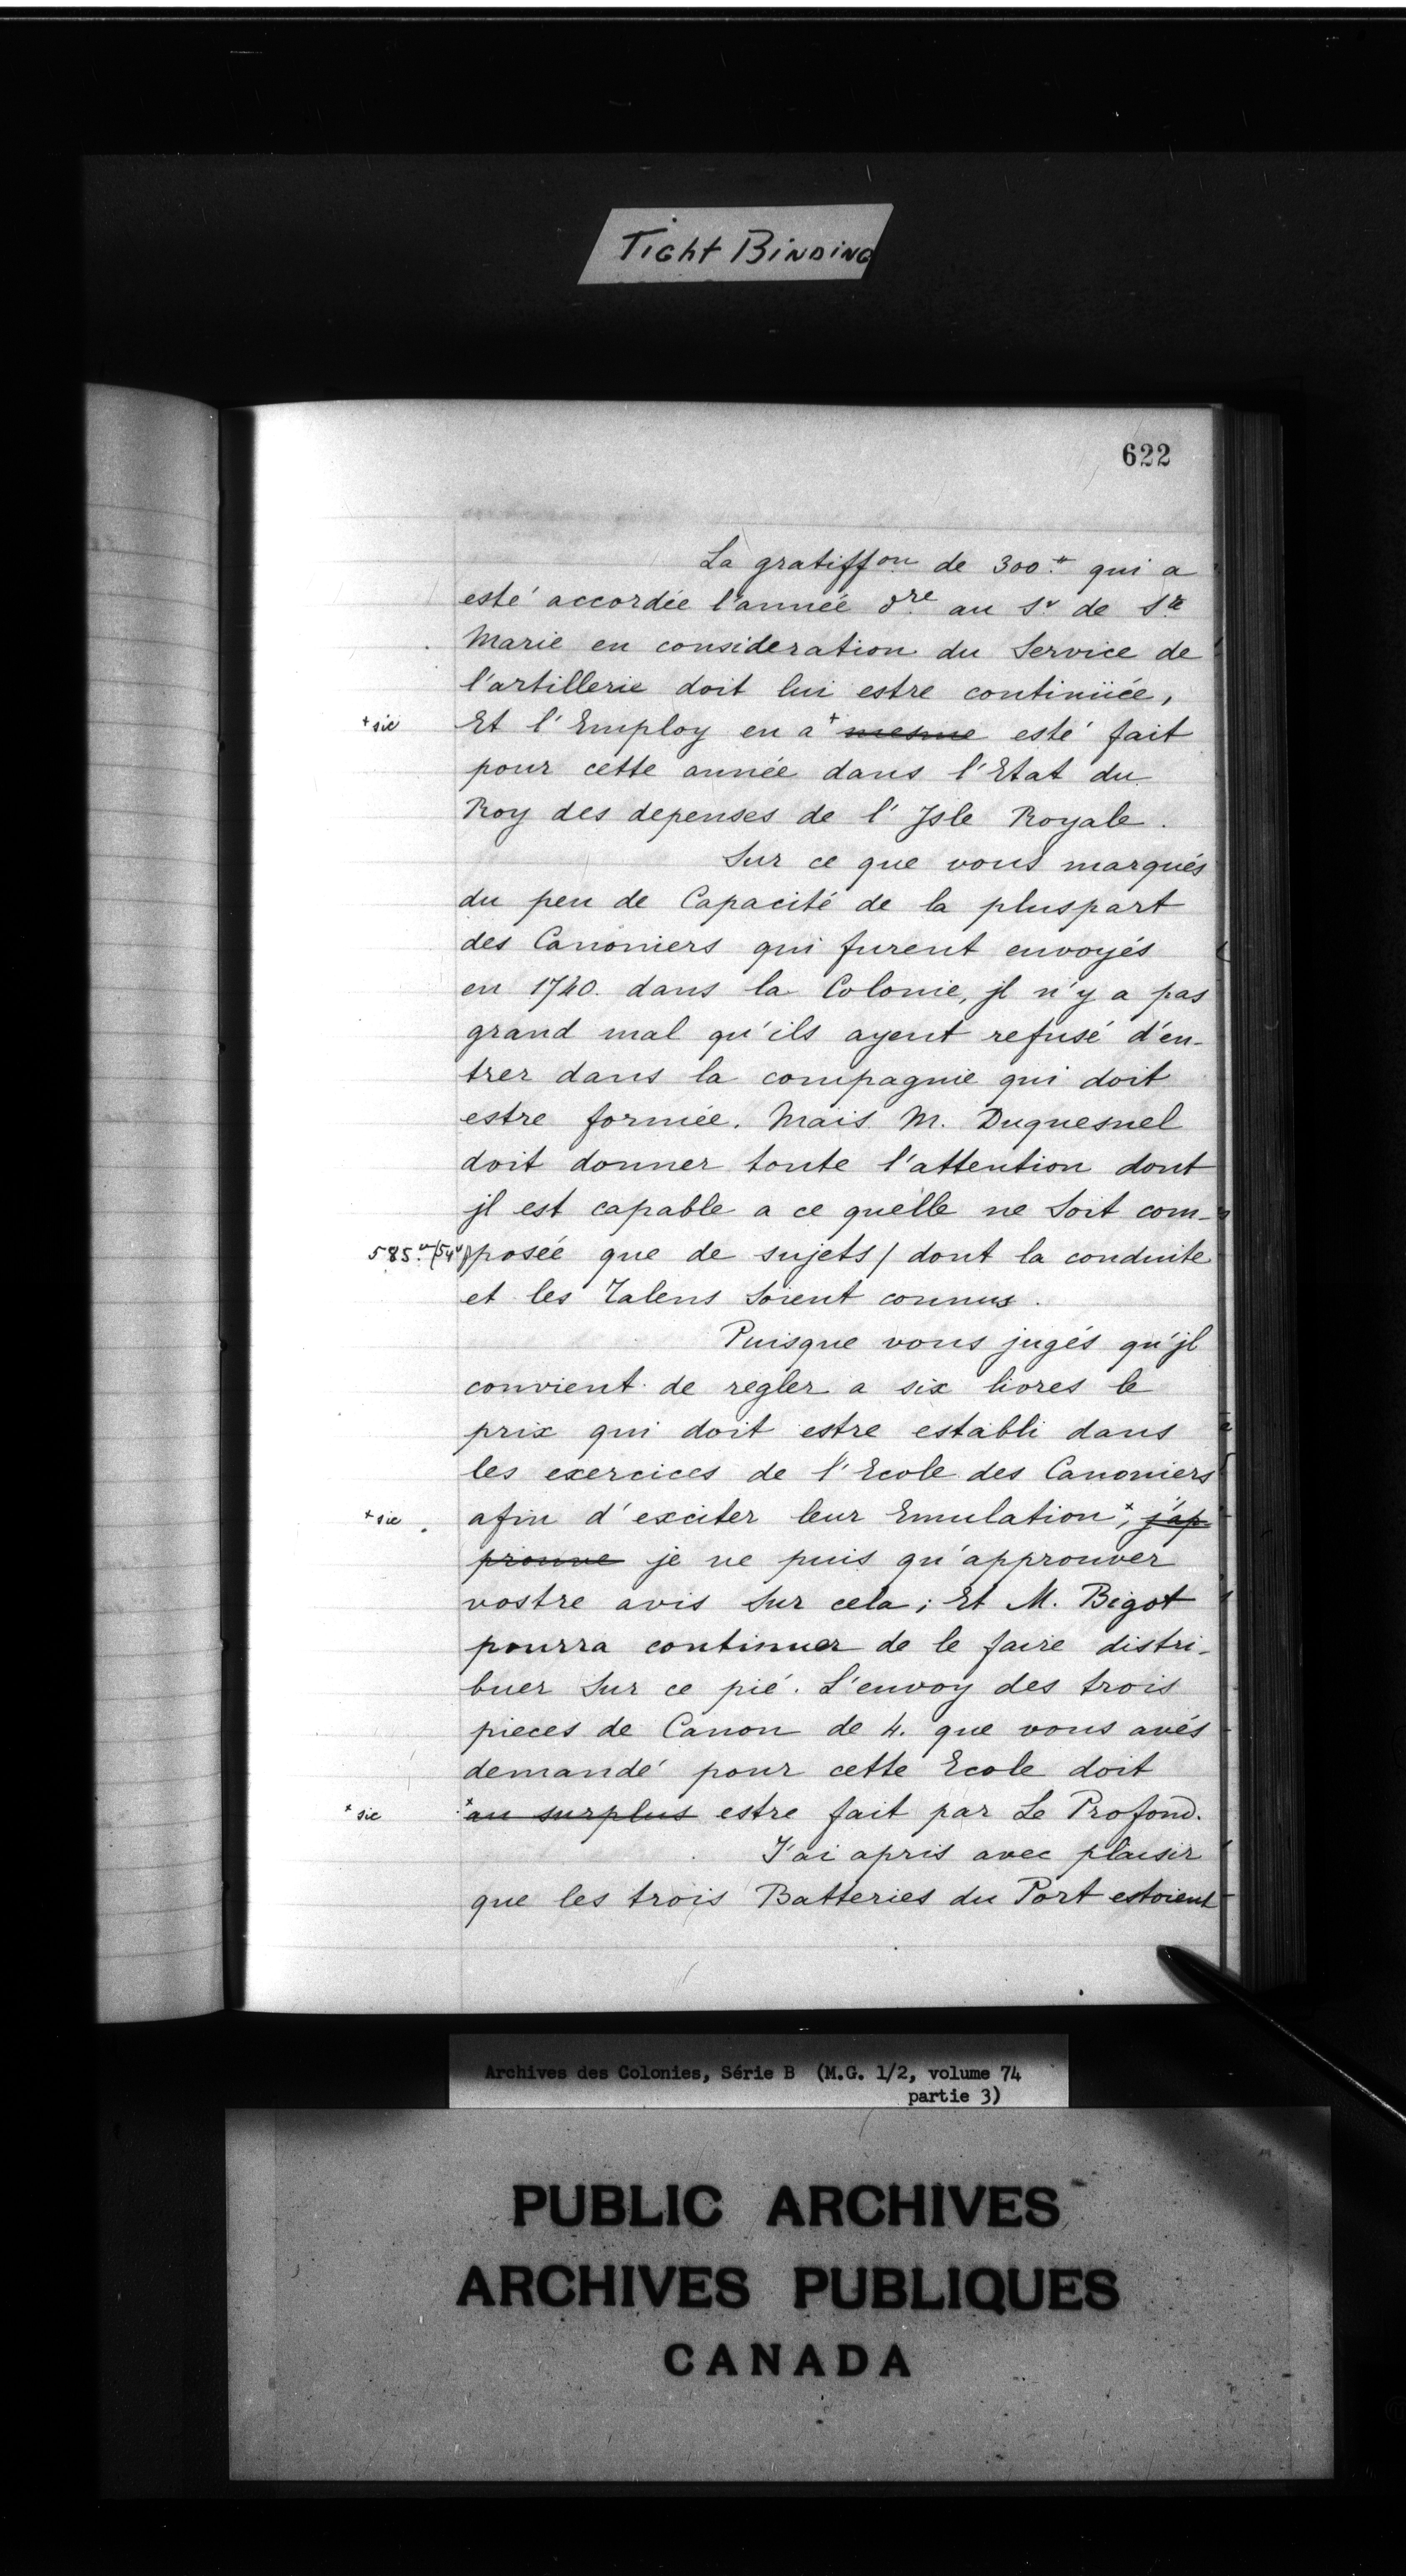 Tight Binding
622
La gratiffon de 300.tt qui a
esté accordée l'année dre au Sr de Ste
Marie en consideration du Service de
l'artillerie doit lui estre continüée,
+ sic Et l'Employ en a + mesme esté fait
pour cette année dans l'Etat du
Roy des depenses de l'Isle Royale.
Sur ce que vous marqués
du peu de Capacité de la pluspart
des Canoniers qui furent envoyés
en 1740. dans la Colonie, jl n'y a pas
grand mal qu'ils ayent refusé d'en-
trer dans la compagnie qui doit
estre formée. Mais M. Duquesnel
doit donner toute l'attention dont
jl est capable a ce quelle ne Soit com-
585.v/54v posée que de sujets / dont la conduite
et les Talens Soient connus.
Puisque vous jugés qu'jl
convient de regler a six livres le
prix qui doit estre establi dans
les exercices de l'Ecole des Canoniers
+ sic afin d'exciter leur Emulation +, j'ap
prouve je ne puis qu'approuver
vostre avis Sur cela; Et M. Bigot
pourra continuer de le faire distri-
buer Sur ce pié. L'envoy des trois
pieces de Canon de 4. que vous avés
demandé pour cette Ecole doit
+ sic + au surplus estre fait par Le Profond.
J'ai apris avec plaisir
que les trois Batteries du Port estoient
Archives des Colonies, Série B (M.G. 1/2, volume 74
partie 3)
PUBLIC ARCHIVES
ARCHIVES PUBLIQUES
CANADA